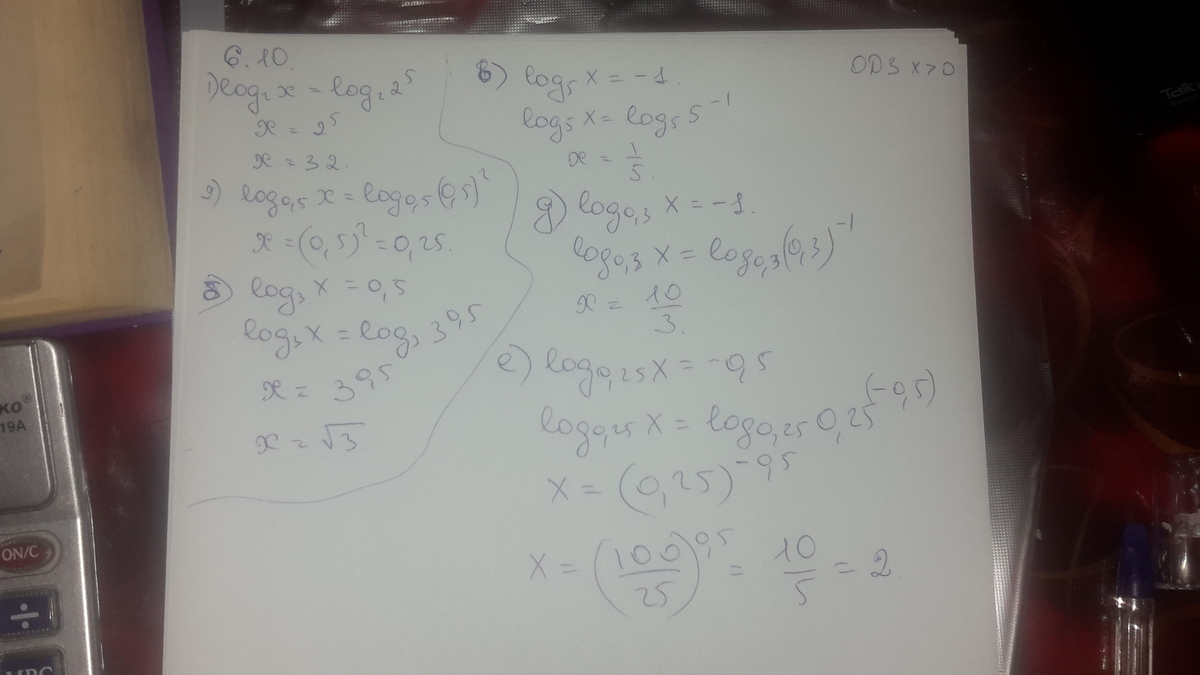 6.10.
1) log₂ x = log₂ 2⁵
x = 2⁵
x = 32.
2) log₀,₅ x = log₀,₅ (0,5)²
x = (0,5)² = 0,25.
б) log₃ x = 0,5
log₃ x = log₃ 3^0,5
x = 3^0,5
x = √3
в) log₅ x = -1.
log₅ x = log₅ 5⁻¹
x = 1/5.
д) log₀,₃ x = -1.
log₀,₃ x = log₀,₃ (0,3)⁻¹
x = 10/3.
е) log₀,₂₅ x = -0,5
log₀,₂₅ x = log₀,₂₅ 0,25^(-0,5)
x = (0,25)^-0,5
x = (100/25)^0,5 = 10/5 = 2.
ОДЗ x>0
19A
ON/C
÷